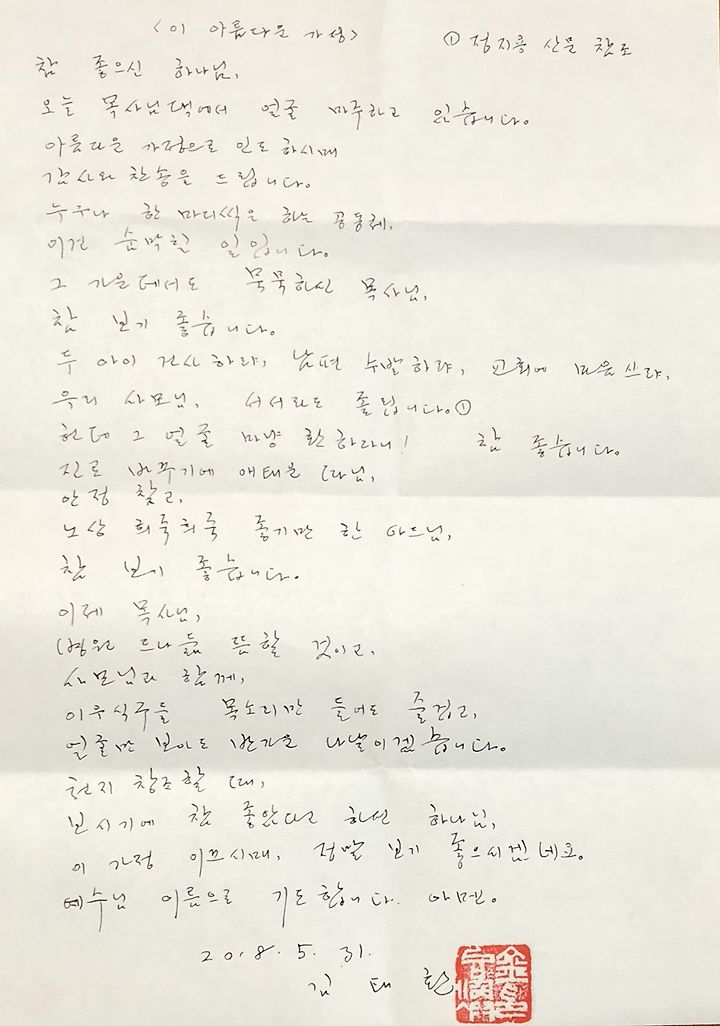 <이 아름다운 가정>
① 정지용 산문 참조
참 좋으신 하나님,
오늘 목사님댁에서 얼굴 마주하고 있습니다.
아름다운 가정으로 인도하시매
감사와 찬송을 드립니다.
누구나 한 마디씩은 하는 공동체,
이건 숨막힐 일입니다.
그 가운데서도 묵묵하신 목사님,
참 보기 좋습니다.
두 아이 건사하랴, 남편 수발하랴, 교회에 마음쓰랴,
우리 사모님, 서서라도 졸립니다.①
헌데 그 얼굴 마냥 환하라니! 참 좋습니다.
진로 바꾸기에 애태운 따님,
안정 찾고,
노상 희죽희죽 좋기만 한 아드님,
참 보기 좋습니다.
이제 목사님,
병원 드나듦 뜸할 것이고,
사모님과 함께,
이우식구들 목소리만 들어도 즐겁고,
얼굴만 보아도 반가운 나날이겠습니다.
천지 창조할 때,
보시기에 참 좋았다고 하신 하나님,
이 가정 이쁘시매, 정말 보기 좋으시겠네요.
예수님 이름으로 기도합니다. 아멘.
2018. 5. 31.
김 태 환